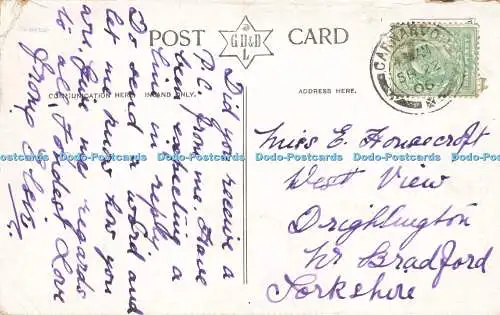 POST CARD
G D & D
L
COMMUNICATION HERE INLAND ONLY.
ADDRESS HERE.
CARNARVON
SP 22
06
Did you receive a
P.C. from me. Have
been expecting a
line in reply.
Do send a word and
let me know how you
are. Give me regards
to all, Fondest Love
from Elsie.
Miss E.
West View
Drighlington
Nr Bradford
Yorkshire
Dodo-Postcards Dodo-Postcards Dodo-Postcards Dodo-Postcards Dodo-Postcards Dodo-Postcards